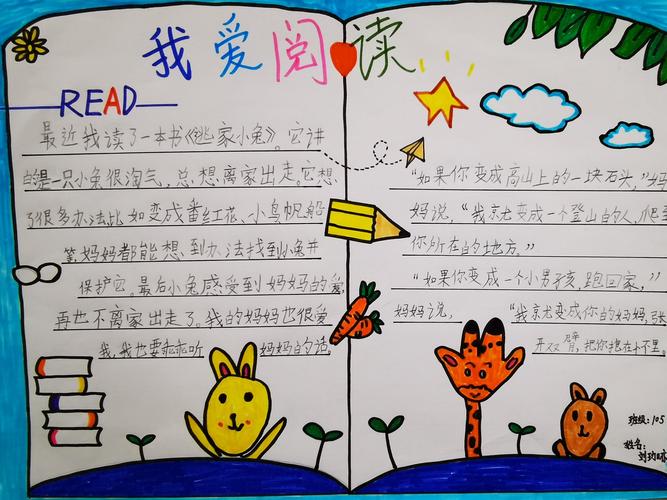 我爱阅读
READ
最近我读了一本书《逃家小兔》。它讲
的是一只小兔很淘气，总想离家出走。它想
了很多办法比如变成番红花、小鸟帆船
等妈妈都能想到办法找到小兔并
保护它。最后小兔感受到妈妈的爱
再也不离家出走了。我的妈妈也很爱
我，我也要乖乖听妈妈的话。
“如果你变成高山上的一块石头，”妈
妈说，“我就变成一个登山的人，爬
你所在的地方。”
“如果你变成一个小男孩，跑回家，”
妈妈说，“我就变成你的妈妈，张
开双臂，把你抱在怀里。
班级：105
姓名：
刘